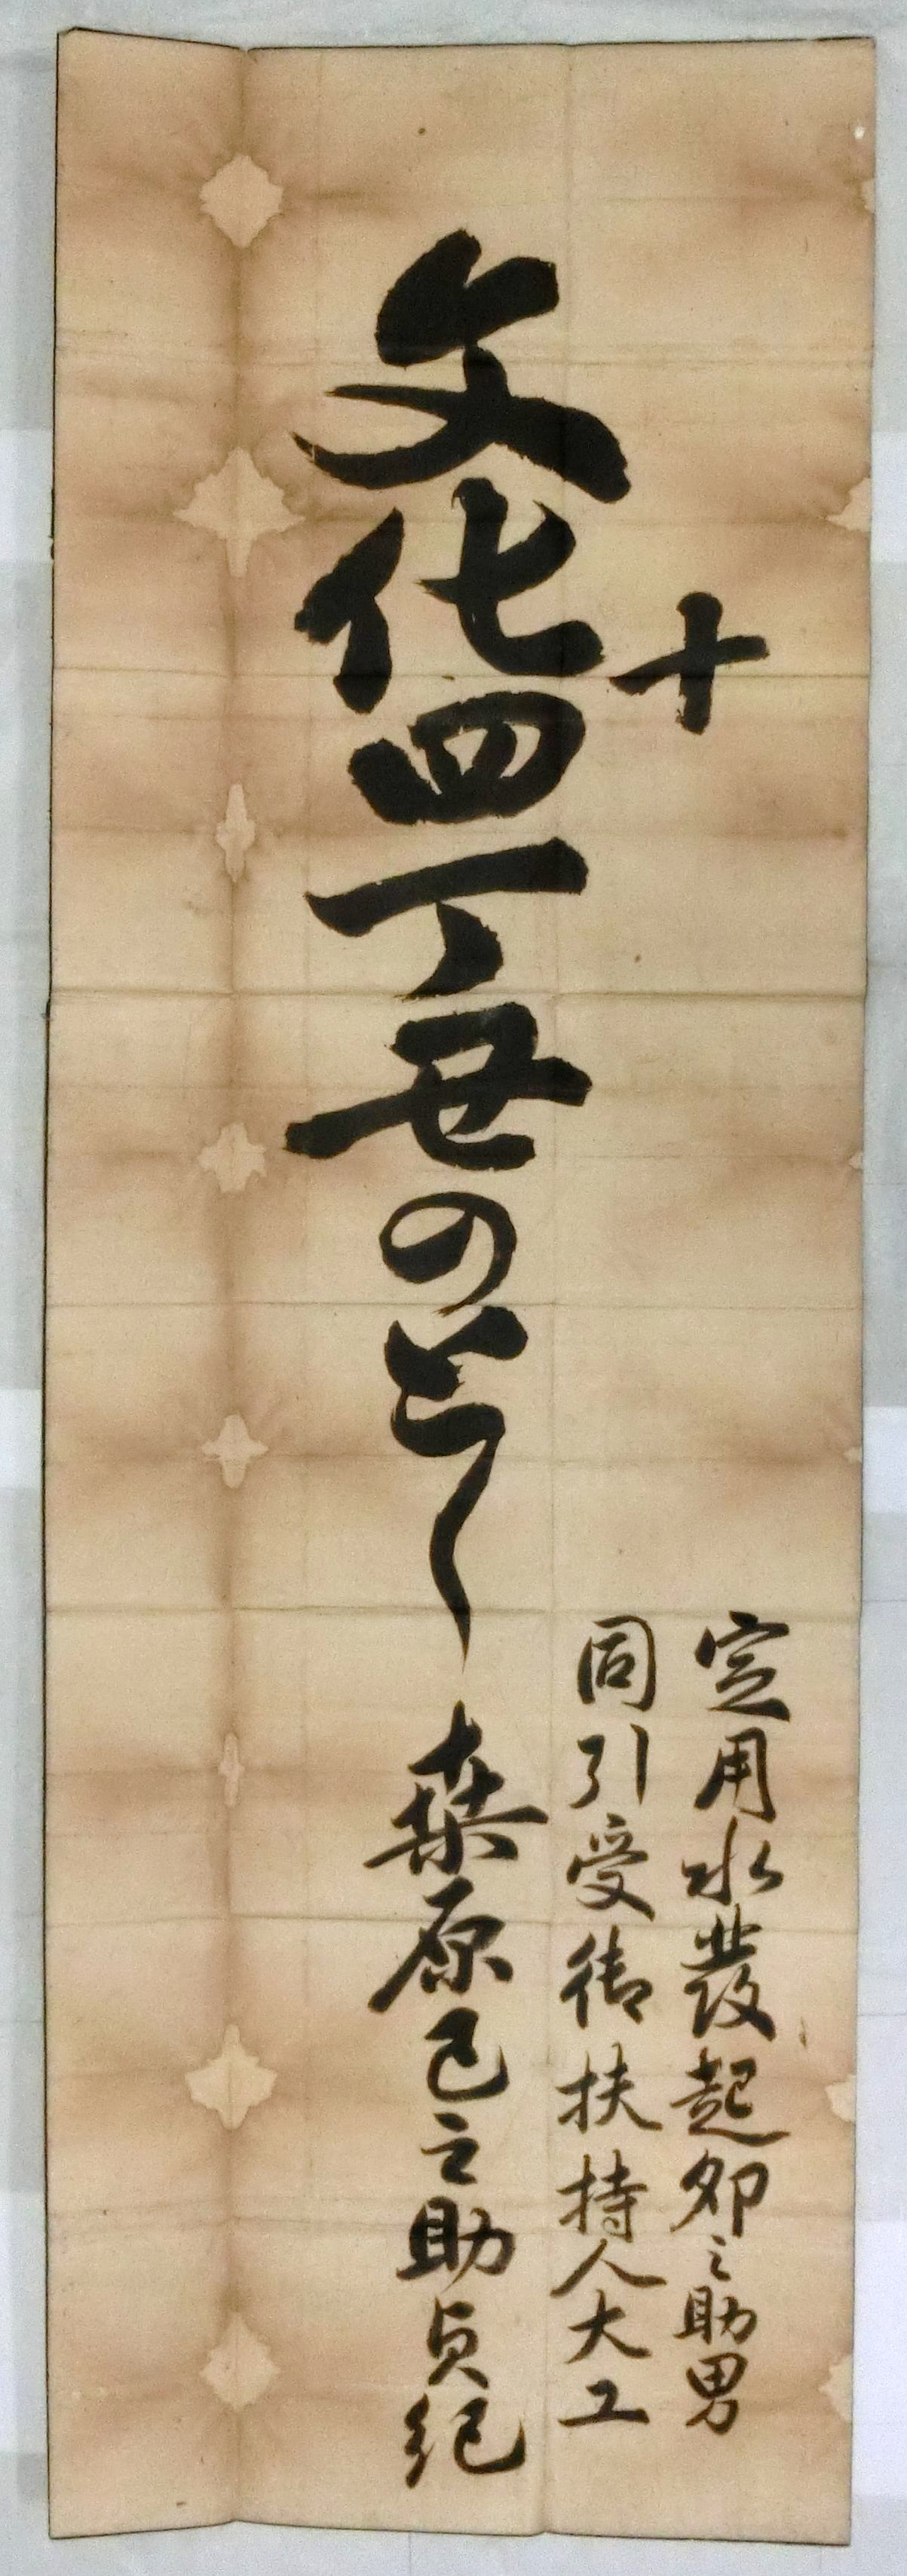 定用水發起卯之助男
同引受御扶持人大工
十
文化四丁丑のとし 桒原巳之助貞紀